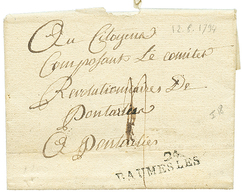 Au Citoyens
Composant Le comité
Revolutionnaires De
Pontarlier
A Pontarlier
24
BAUMES LES